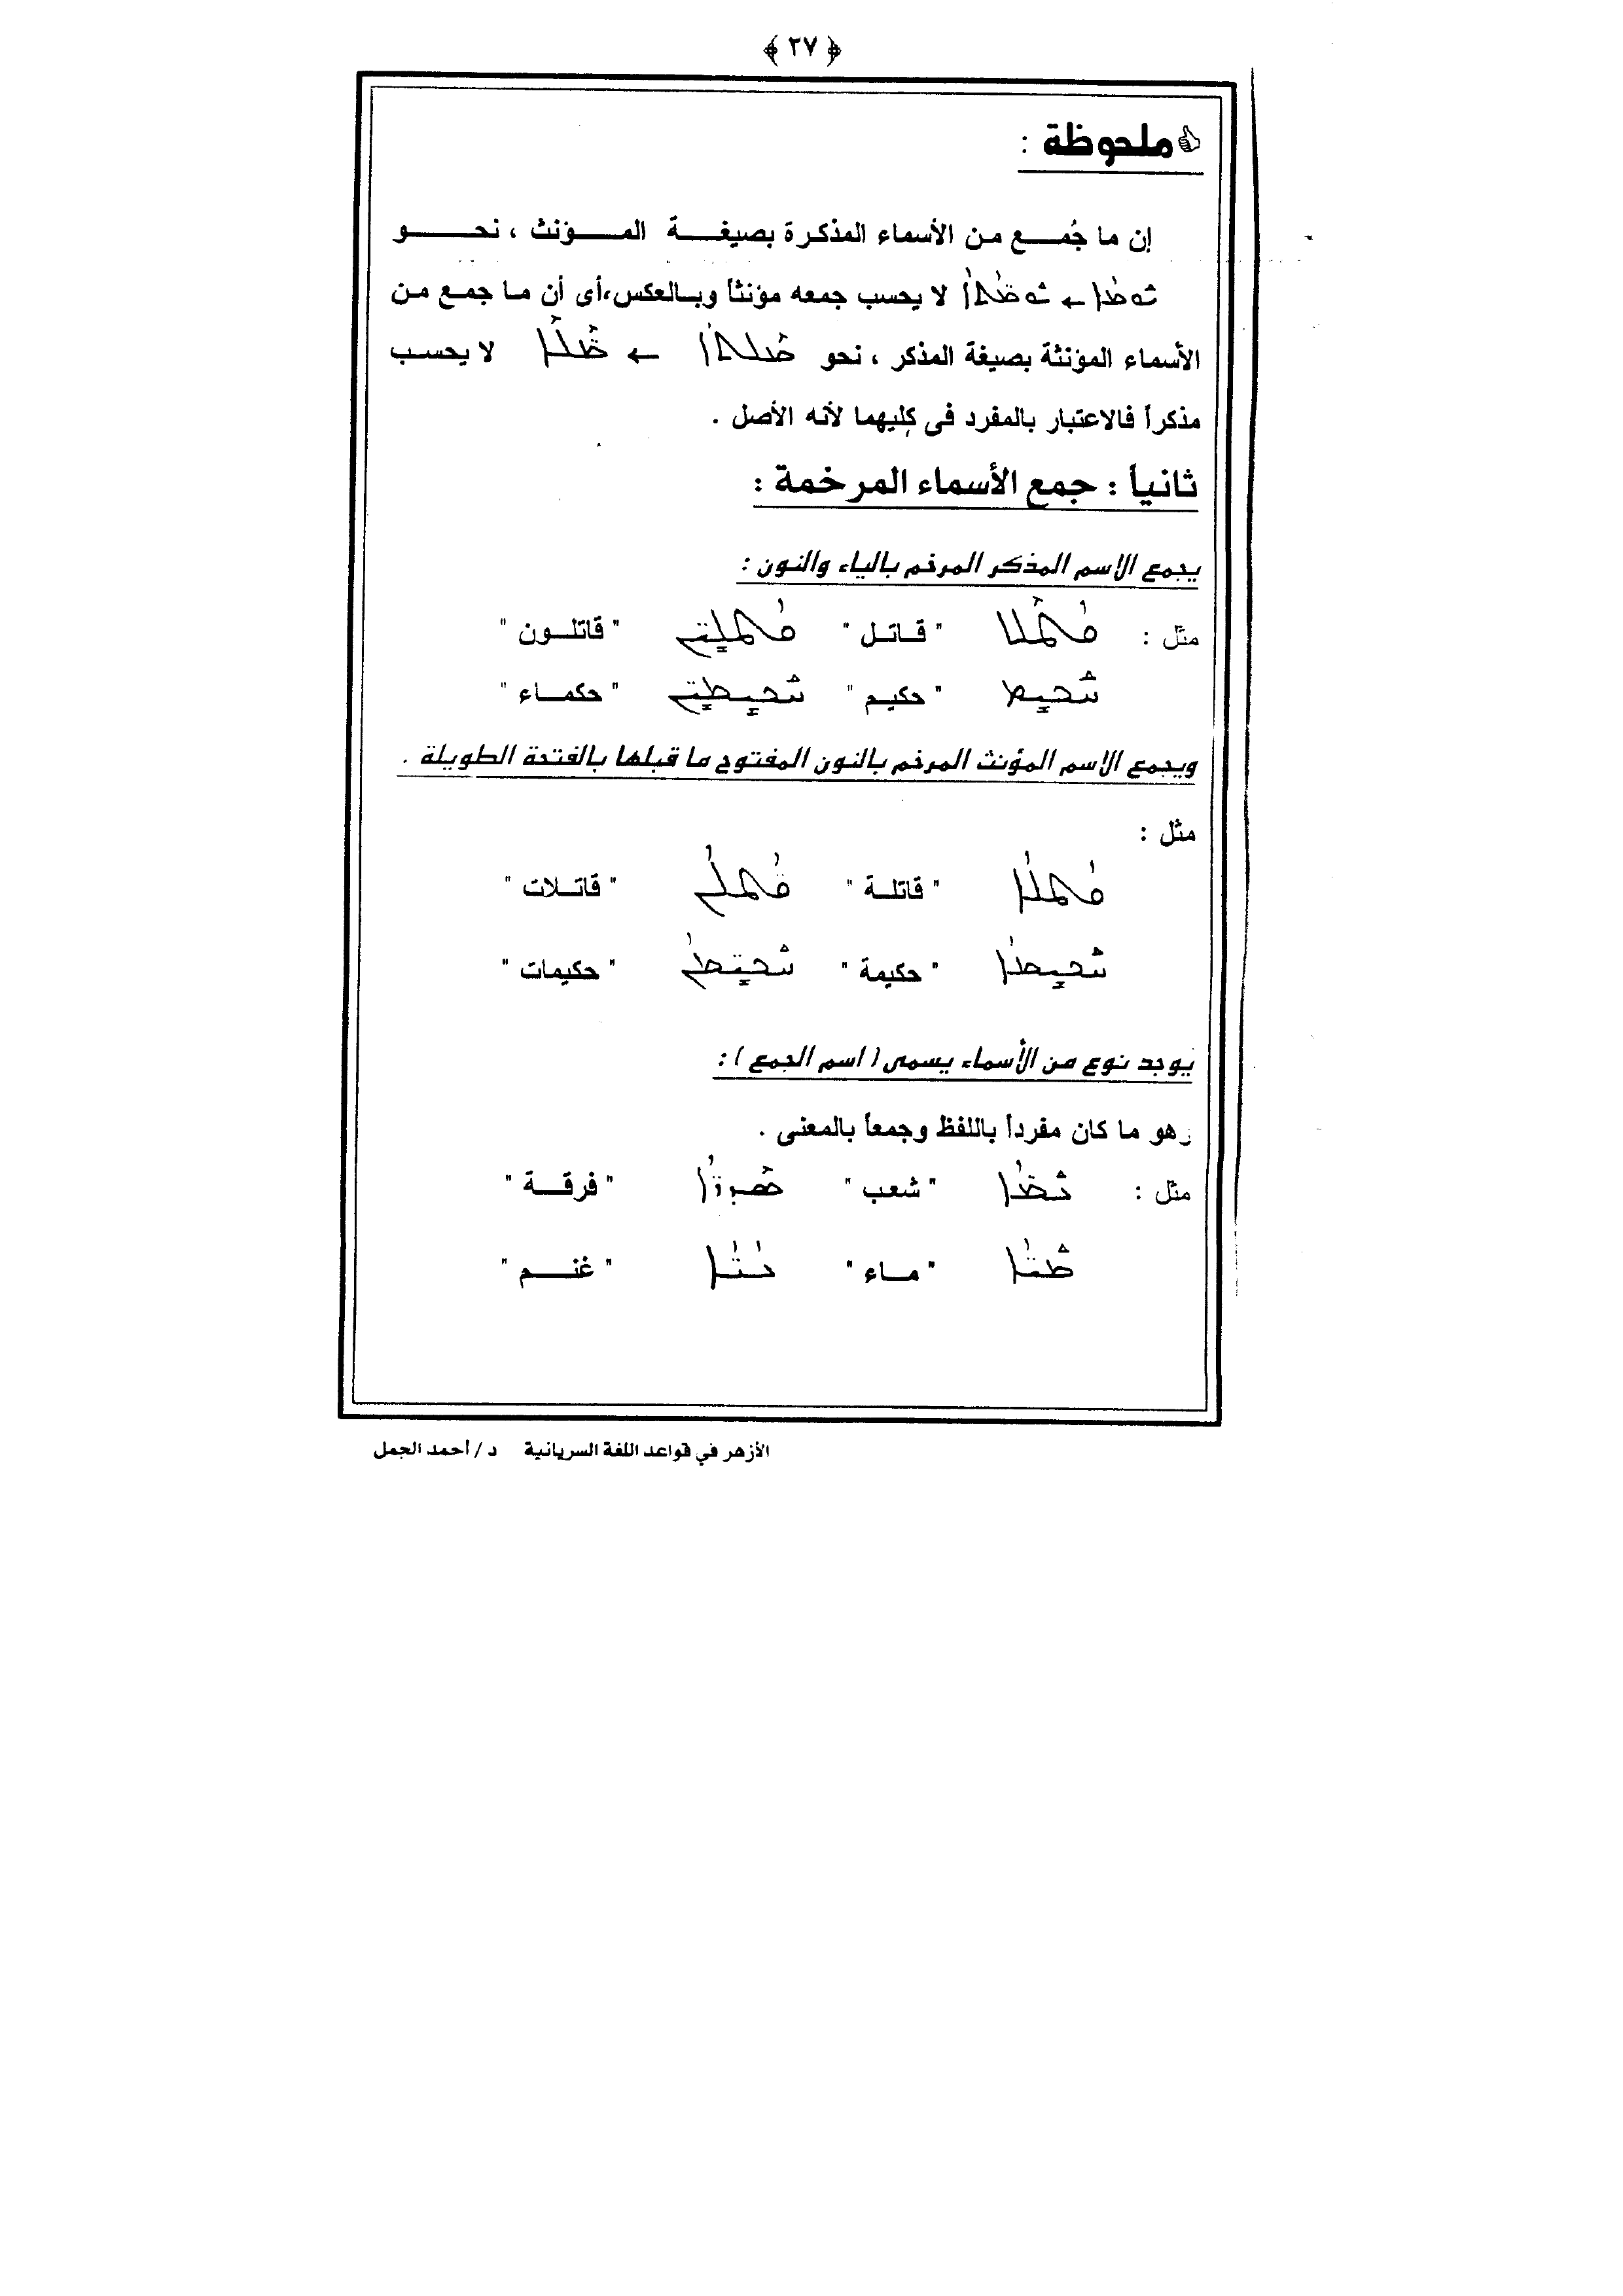 ﴿ ٢٧ ﴾
ملحوظة :
إن ما جُمـــع من الأسماء المذكرة بصيغـــة المـــؤنث ، نحـــو
ܝܘܡܐ ← ܝܘܡܬܐ لا يحسب جمعه مؤنثاً وبـالعكس،أى أن مـا جمـع مـن
الأسماء المؤنثة بصيغة المذكر ، نحو ܡܠܬܐ ← ܡܠܐ لا يحسـب
مذكراً فالاعتبار بالمفرد فى كليهما لأنه الأصل .
ثانياً : جمع الأسماء المرخمة :
يجمع الاسم المذكر المرخم بالياء والنون :
مثل : ܩܛܠܐ " قـاتـل " ܩܛܠܝܢ " قاتلـون "
ܚܟܝܡ " حكيـم " ܚܟܝܡܝܢ " حكمـاء "
ويجمع الاسم المؤنث المرخم بالنون المفتوح ما قبلها بالفتحة الطويلة .
مثل :
ܩܛܠܐ " قاتلـة " ܩܛܠܢ " قاتـلات "
ܚܟܝܡܐ " حكيمة " ܚܟܝܡܢ " حكيمات "
يوجد نوع من الأسماء يسمى ( اسم الجمع ) :
وهو ما كان مفرداً باللفظ وجمعاً بالمعنى .
مثل : ܥܡܐ " شعب " " فرقـــة "
ܡܝܐ " مـاء " ܥܢܐ " غنـــم "
الأزهر في قواعد اللغة السريانية د / أحمد الجمل